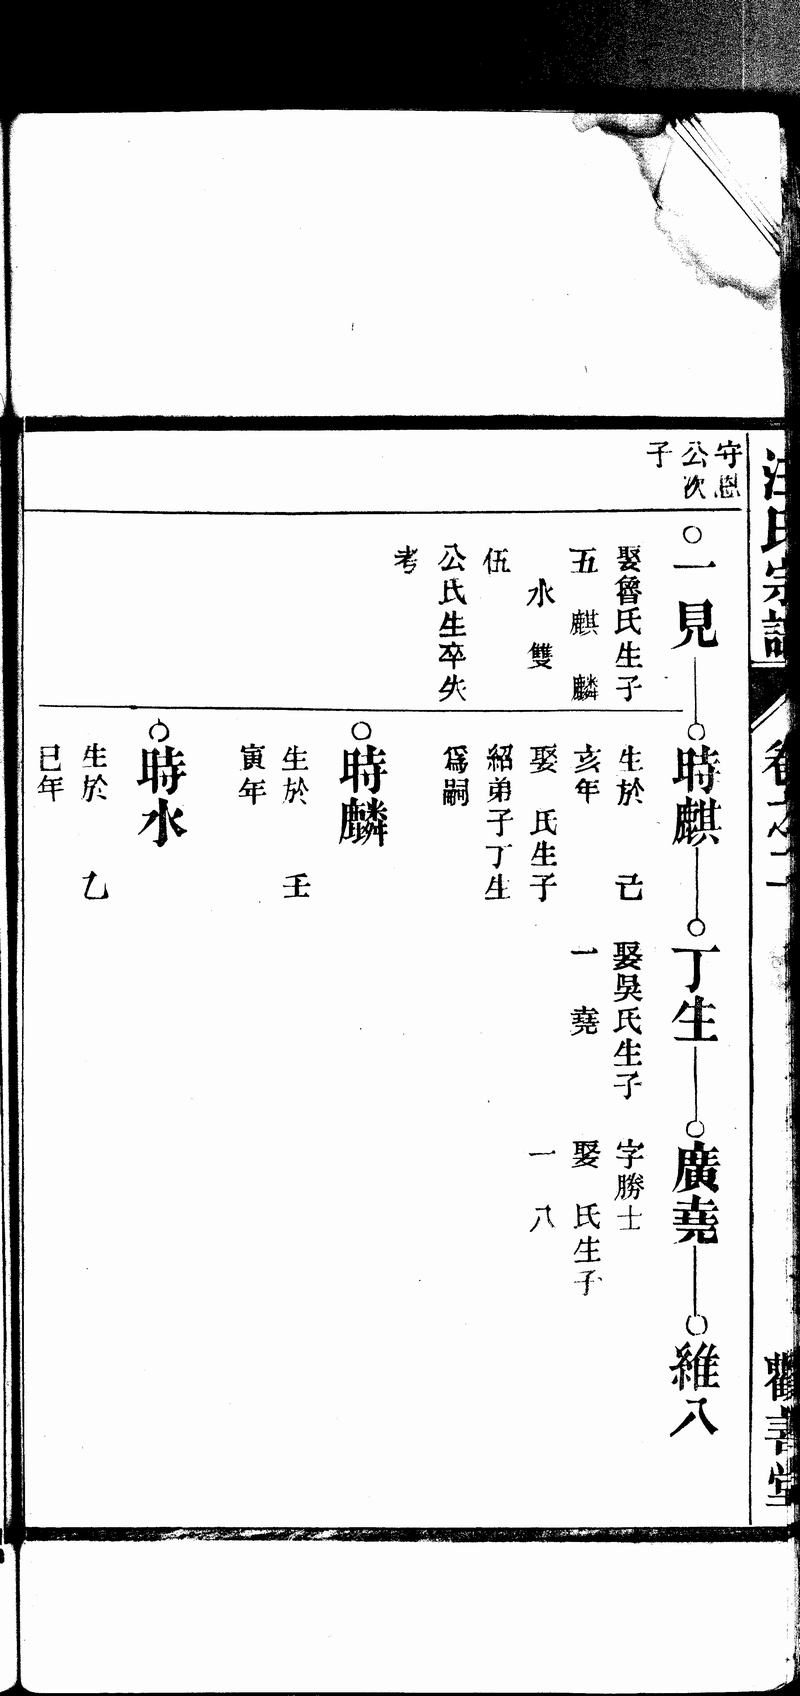 汪氏宗譜
卷之二
觀善堂
守恩
公次
子
一見
娶魯氏生子
五 麒 麟
水 雙
伍
公氏生卒失
考
時麒
生於 己
亥年
娶 氏生子
紹弟子丁生
爲嗣
丁生
娶吳氏生子
一 堯
廣堯
字勝士
娶 氏生子
一 八
維八
時麟
生於 壬
寅年
時水
生於 乙
巳年